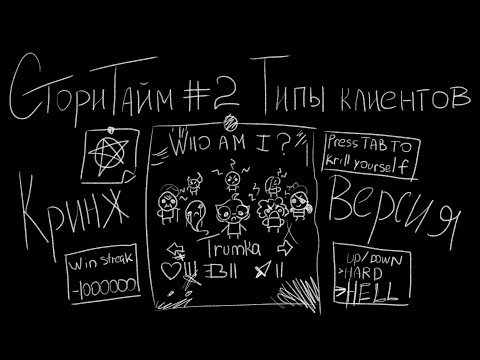 СториТайм #2 Типы клиентов
WHO AM I?
Press TAB TO
Krill yourself
Кринж
Версия
Irumka
Win streak
-1000000
UP/DOWN
>HARD
>HELL